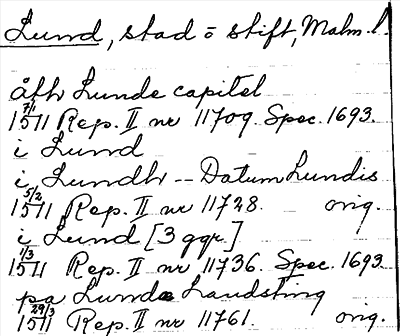 Lund, stad o stift, Malm. l.
åth Lunde capitel
7/1 1511 Rep. II nr 11709. Spec. 1693.
i Lund
i Lundh -- Datum Lundis
5/2 1511 Rep. II nr 11728. orig.
i Lund [3 ggr.]
1/3 1511 Rep. II nr 11736. Spec. 1693
pa Lunda Landsting
29/3 1511 Rep. II nr 11761. orig.